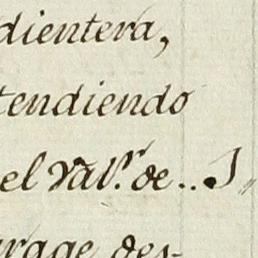 dientera,
tendiendo
el Val.r de .. J
arage des-